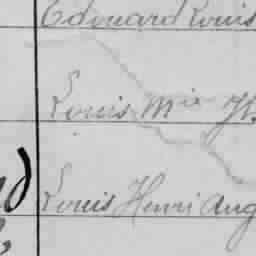 Edouard Louis
Louis Mie
Louis Henri Aug